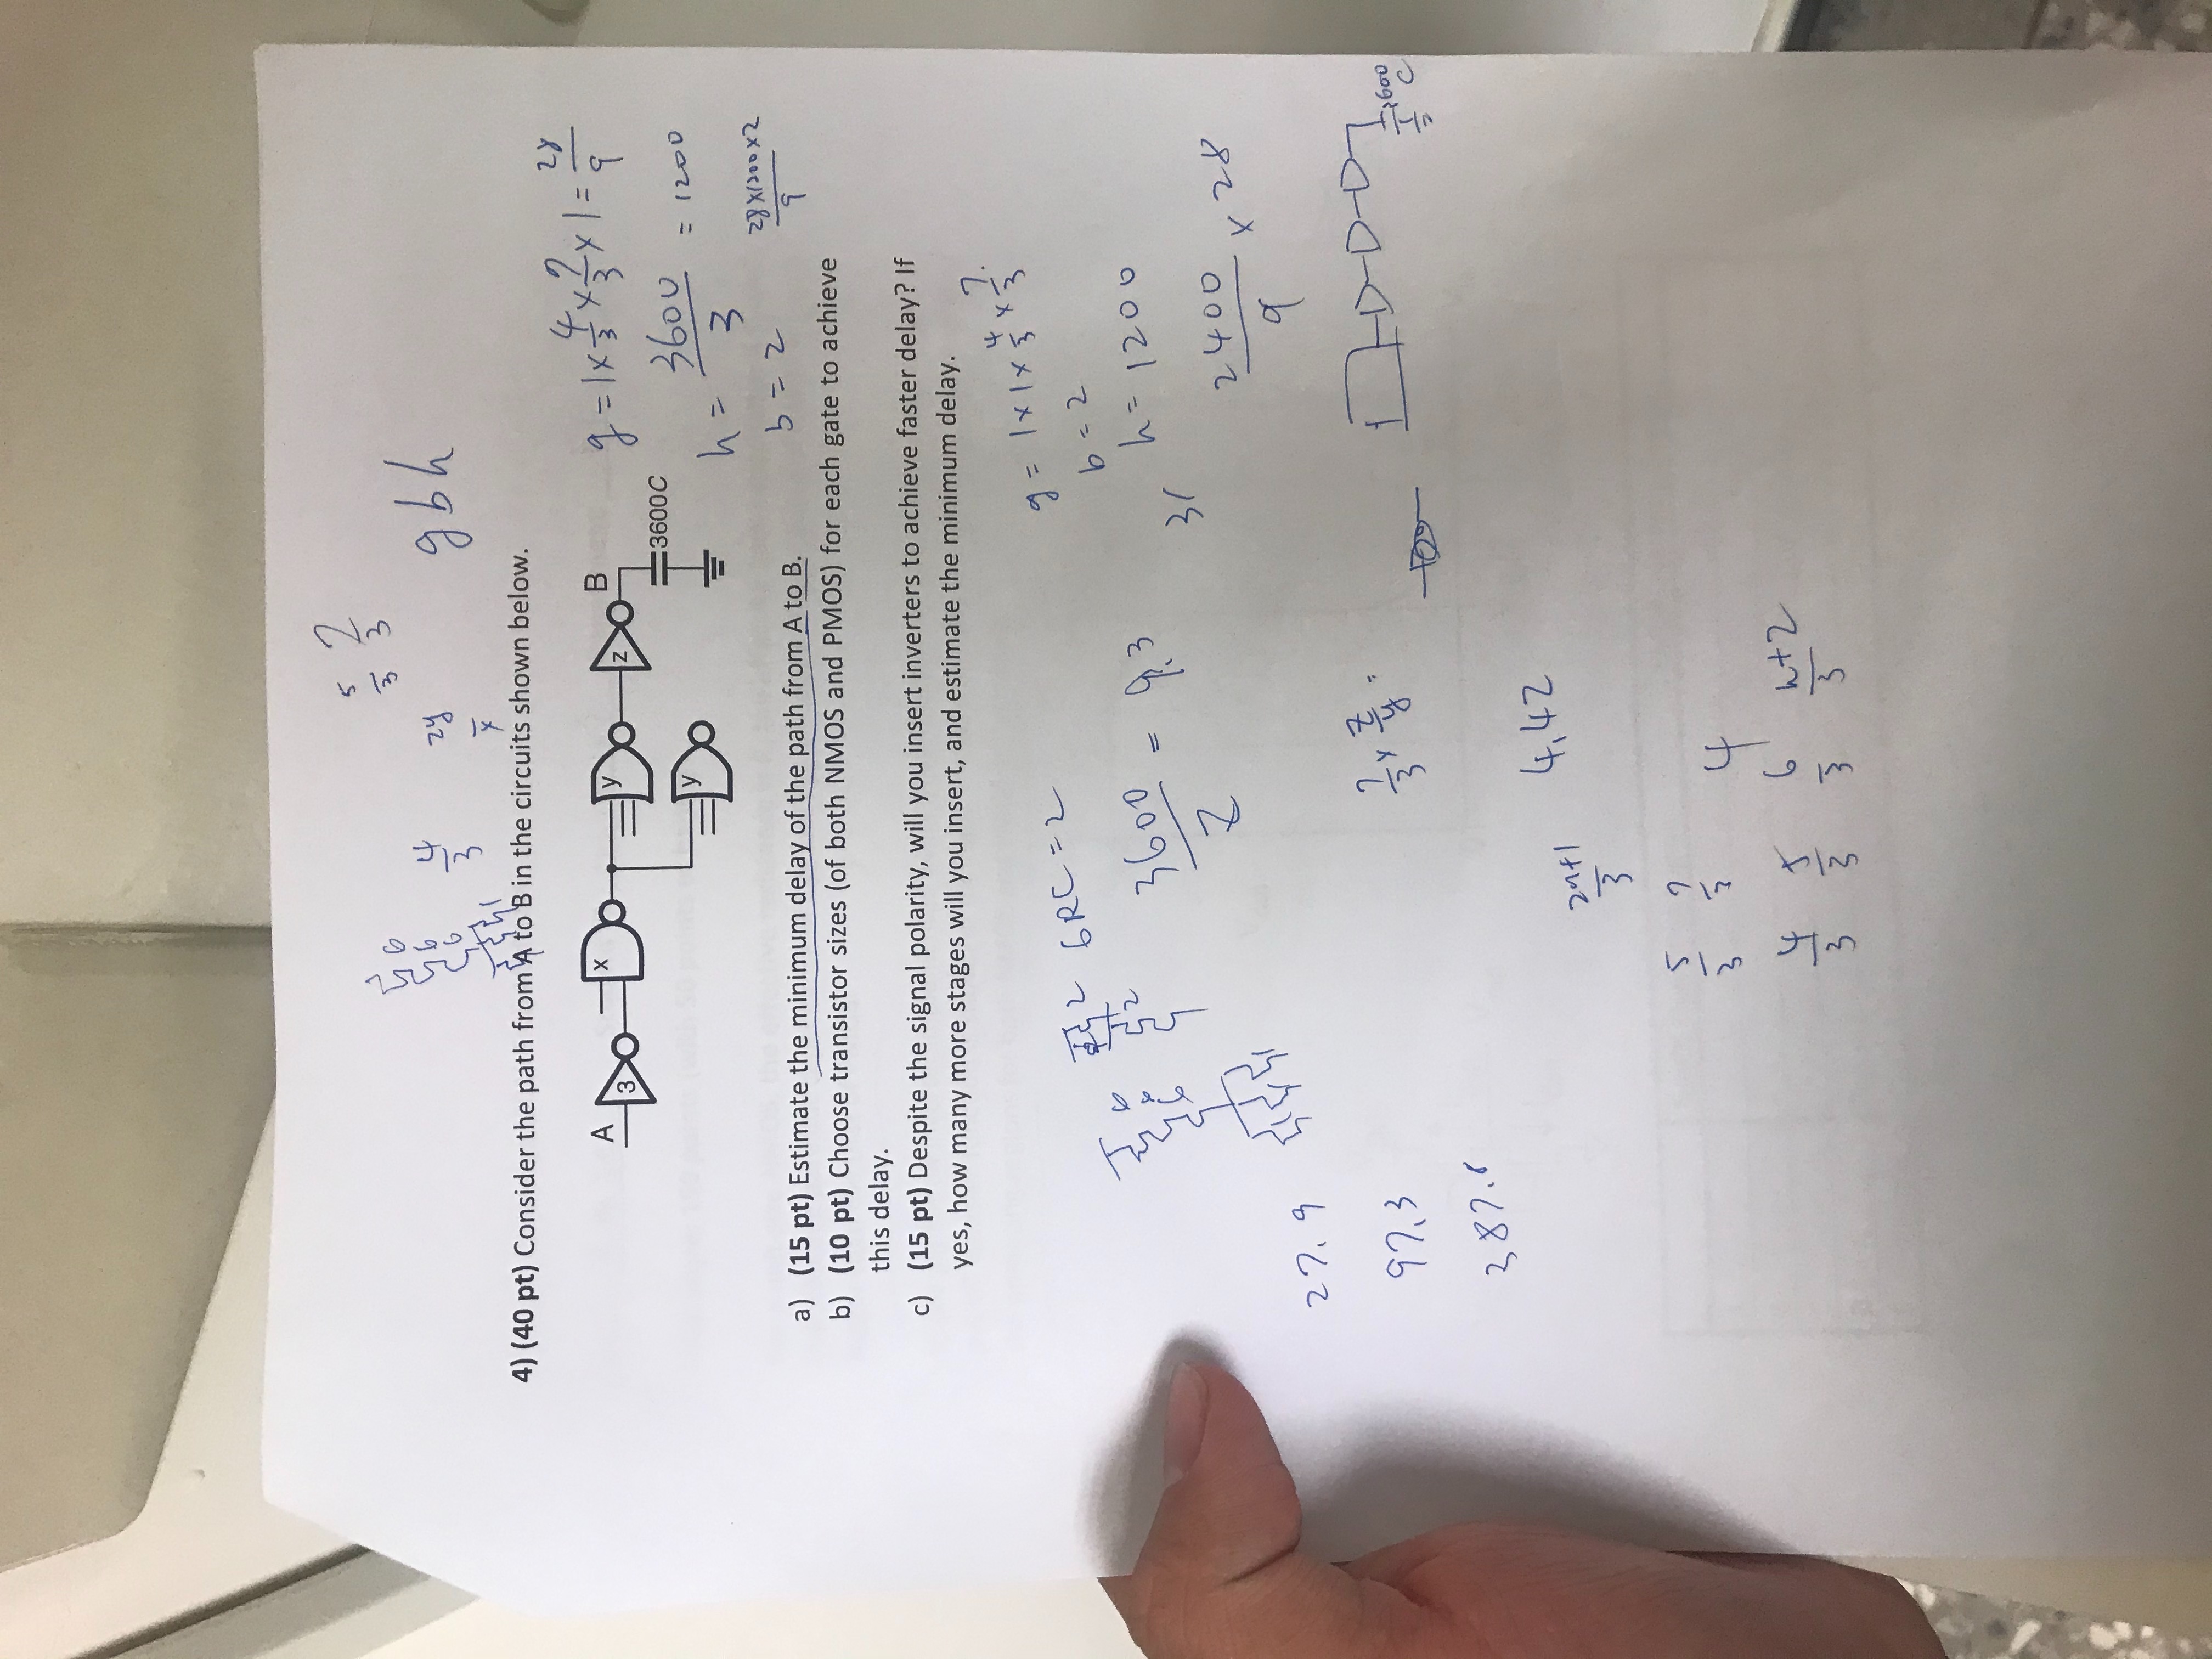 5/3 7/3
6
6
6
1
4/3
2y/x
gbh
4) (40 pt) Consider the path from A to B in the circuits shown below.
A 3 x y z B
3600C
y
g = 1 x 4/3 x 7/3 x 1 = 28/9
h = 3600/3 = 1200
b = 2
28x1200x2/9
a) (15 pt) Estimate the minimum delay of the path from A to B.
b) (10 pt) Choose transistor sizes (of both NMOS and PMOS) for each gate to achieve
this delay.
c) (15 pt) Despite the signal polarity, will you insert inverters to achieve faster delay? If
yes, how many more stages will you insert, and estimate the minimum delay.
g = 1 x 1 x 4/3 x 7/3
b = 2
h = 1200
2 6RC = 2
2
6
6
6
3600/z = 9.3
2400/9 x 28
27.9
97.3
7/3 x z/y =
3600
C
4.42
2n+1/3
5/3 7/3
4
4/3 5/3 6/3 n+2/3